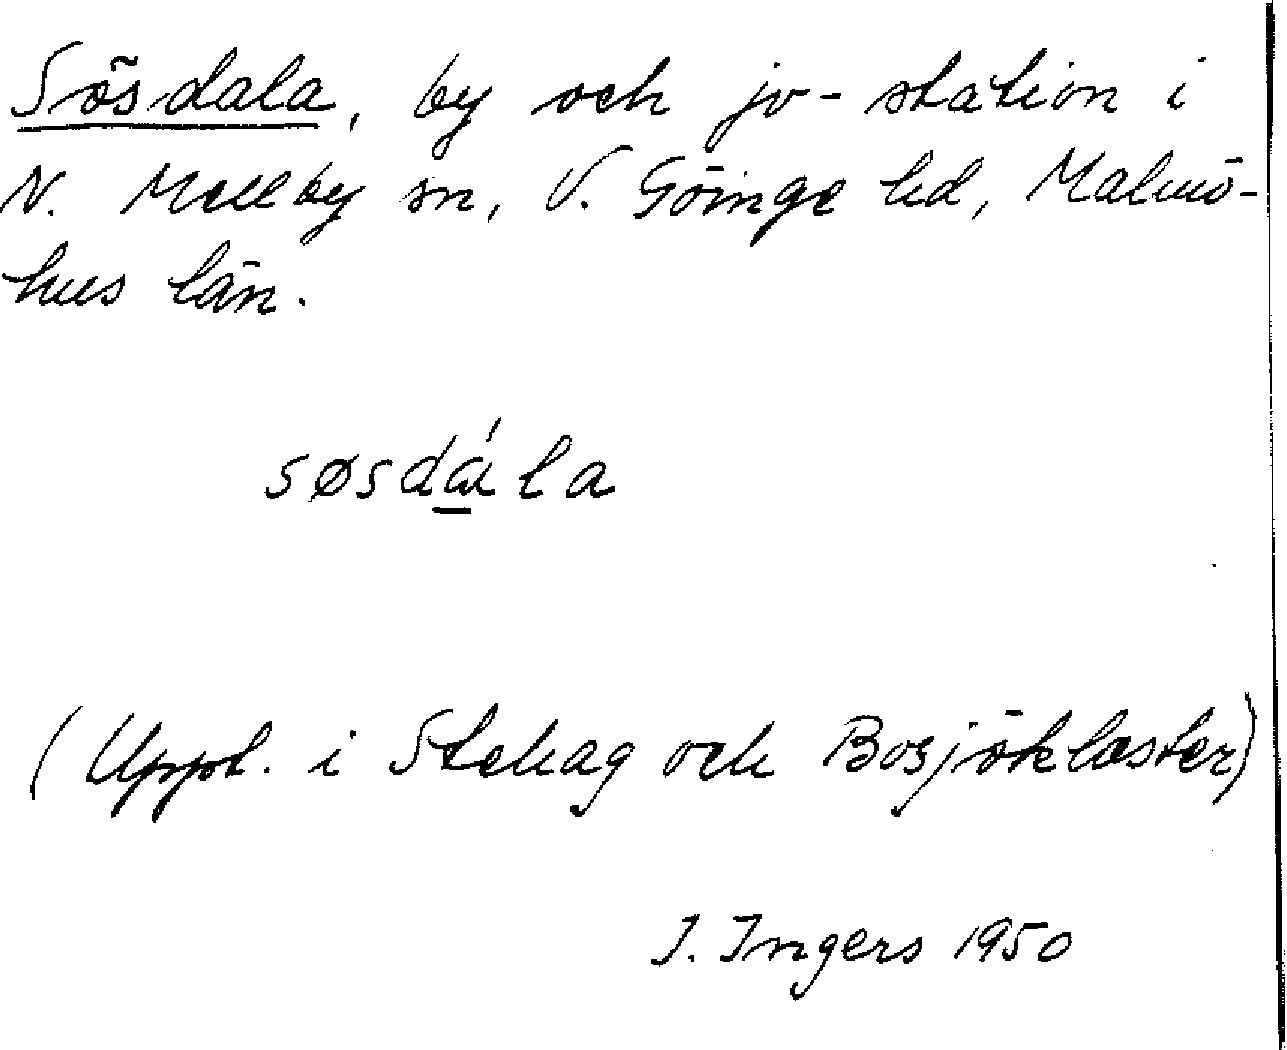 Sösdala, by och jv-station i
N. Mellby sn, V. Göinge hd, Malmö-
hus län.
søsdála
(Uppt. i Stehag och Bosjökloster)
I. Ingers 1950